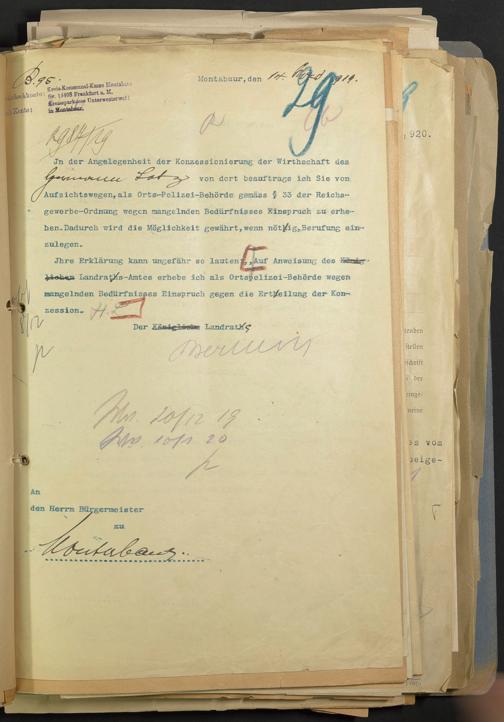 B. 95.
Kreis-Kommunal-Kasse Montabaur
Nr. 15405 Frankfurt a. M.
Kreissparkasse Unterwesterwald
in Montabaur.
Konto:
Montabaur, den 14. 1919.
29
920.
Jn der Angelegenheit der Konzessionierung der Wirthschaft des
Hermann von dort beauftrage ich Sie von
Aufsichtswegen, als Orts-Polizei-Behörde gemäss § 33 der Reichs-
gewerbe-Ordnung wegen mangelnden Bedürfnisses Einspruch zu erhe-
ben. Dadurch wird die Möglichkeit gewährt, wenn nötig, Berufung ein-
zulegen.
Jhre Erklärung kann ungefähr so lauten: "Auf Anweisung des König-
lichen Landrats-Amtes erhebe ich als Ortspolizei-Behörde wegen
mangelnden Bedürfnisses Einspruch gegen die Erteilung der Kon-
zession.
Der Königliche Landrat
Wv. 20/12 19
Wv. 10/1 20
An
den Herrn Bürgermeister
zu
Montabaur.